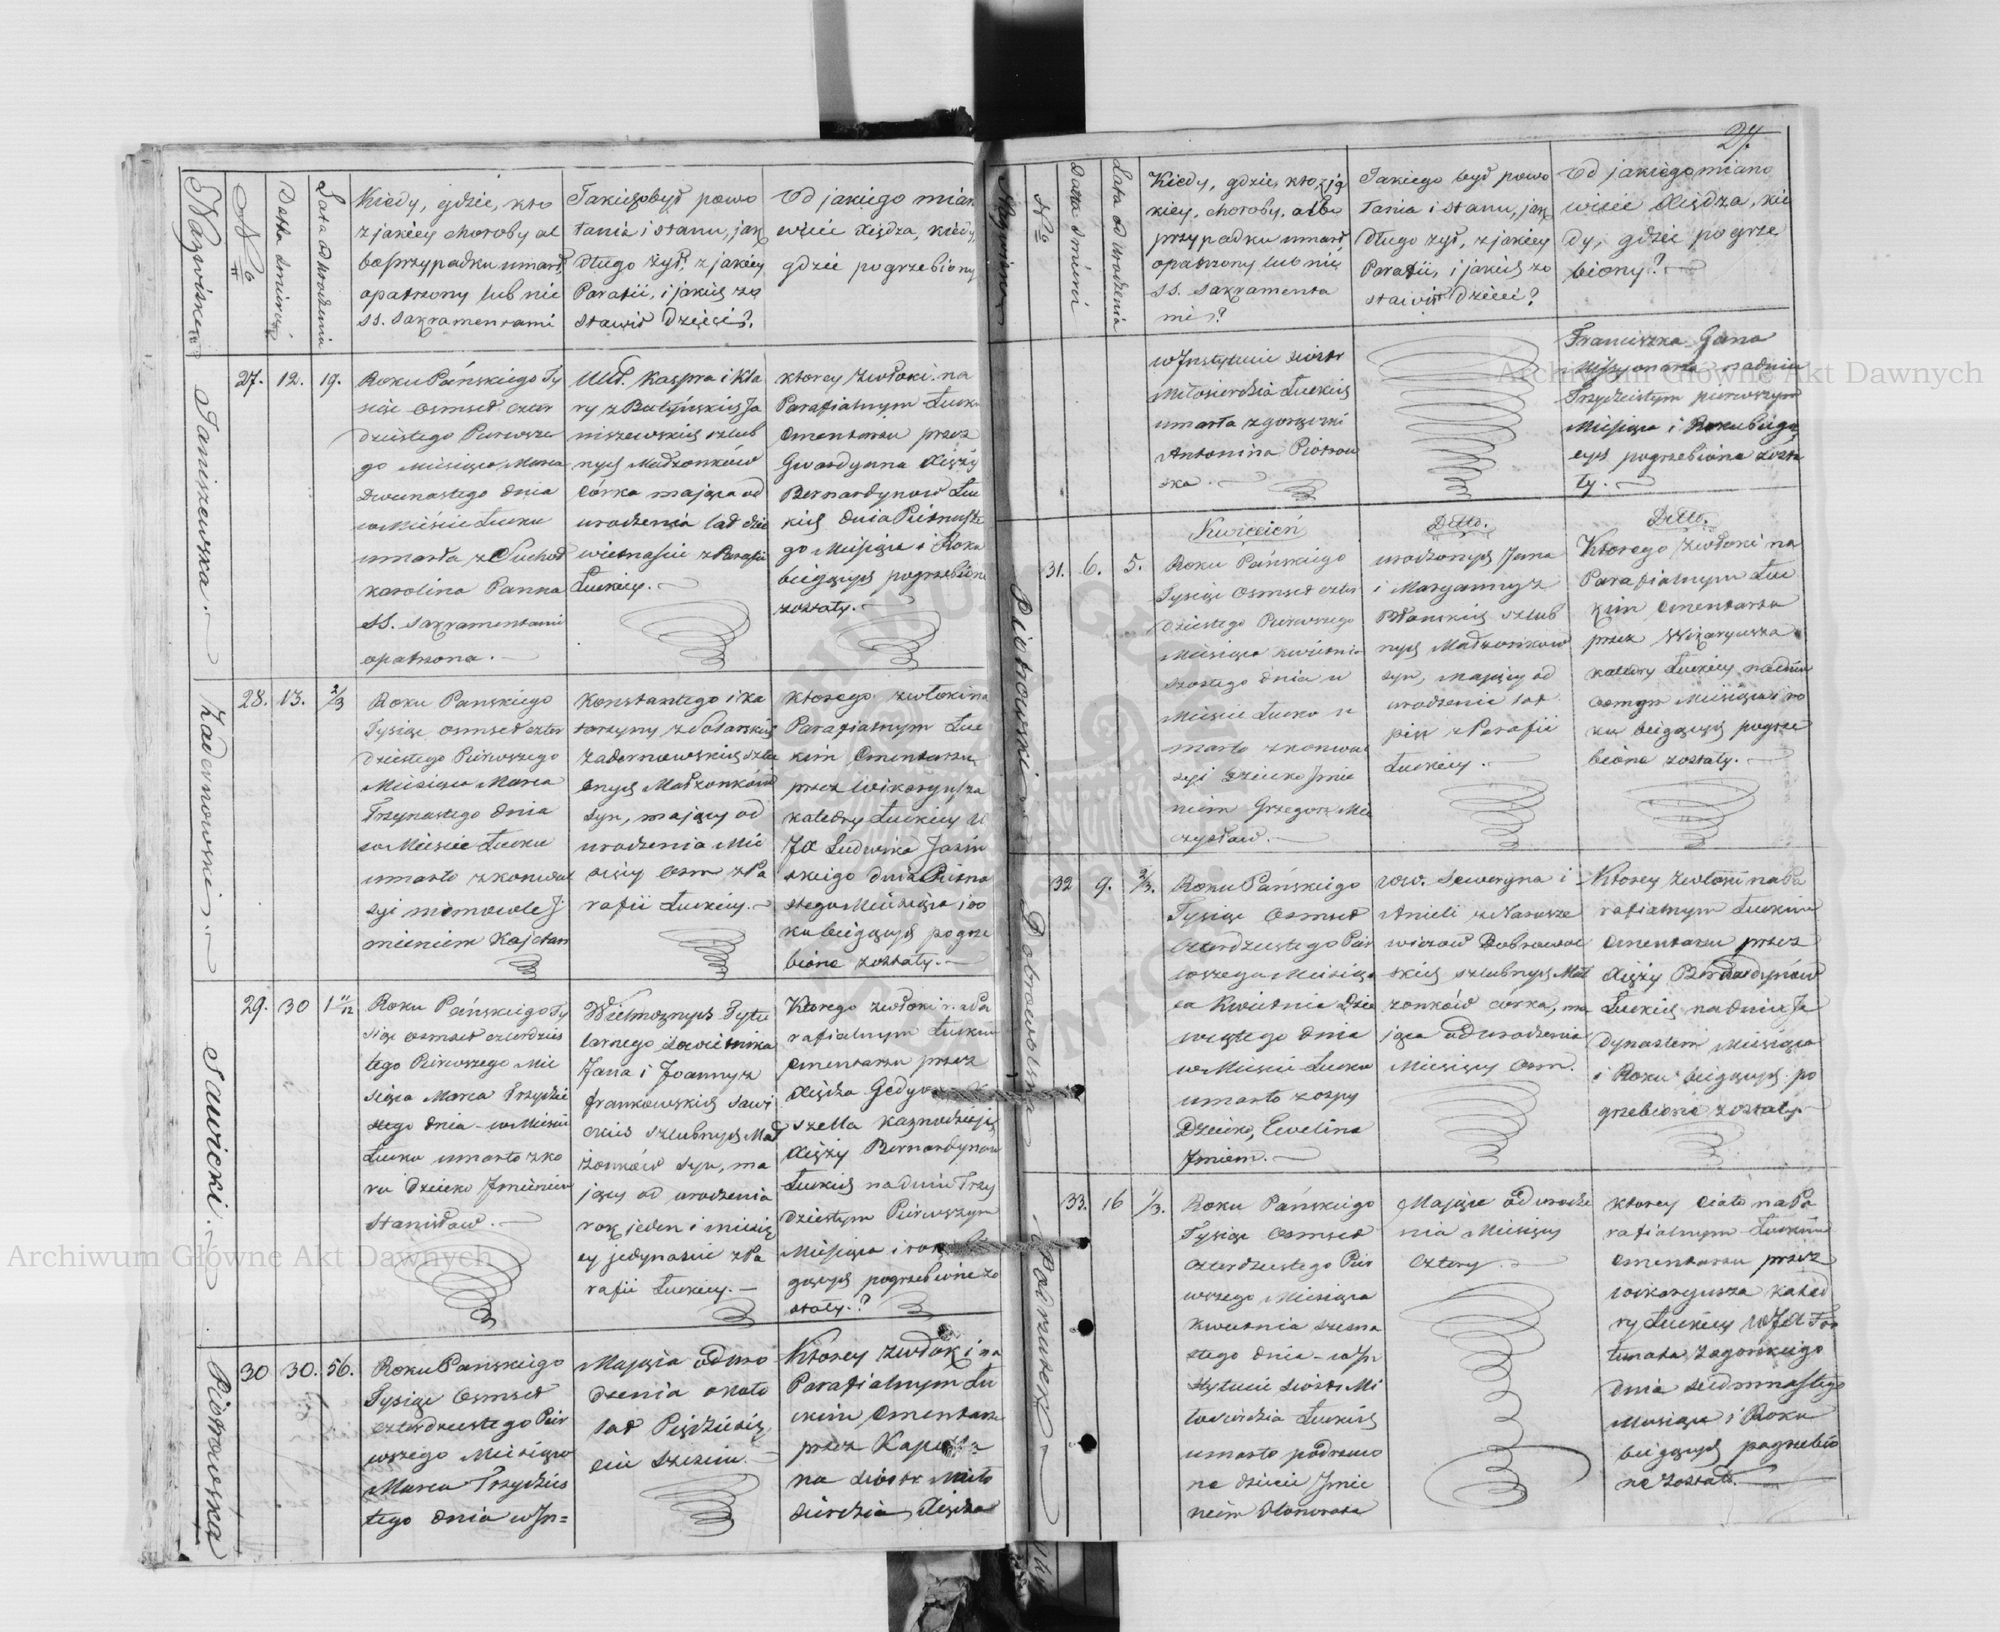 27.
Nazwisko
No
Data śmierci
Lata od urodzenia
Kiedy, gdzie, kto
z jakiey choroby al
bo przypadku umarł,
opatrzony lub nie
SS. Sakramentami
Jakiegobył powo
łania i stanu, jak
długo żył, z jakiey
Parafii, i jakich zo
stawił Dzieci?
Od jakiego miano
wicie Xiędza, kiedy,
gdzie pogrzebiony
Janiszewska.
27.
12.
19.
Roku Pańskiego Ty
siąc osmset czter
dziestego Pierwsze
go Miesiąca Marca
Dwunastego dnia
w Mieście Łucku
umarła z Suchot
Karolina Panna
SS. Sakramentami
opatrzona.
Kaspra i Kla
ry z Butyńskich Ja
niszewskich szlub
nych Małżonków
Córka mająca od
urodzenia lat dzie
więtnaście z Parafii
Łuckiey.
ktorey zwłoki na
Parafialnym Łuckim
Cmentarzu przez
Gwardyana Xięży
Bernardynow Łuc
kich dnia Piętnaste
go Miesiąca i Roku
bieżących pogrzebione
zostały.
Zadernowski.
28.
13.
2/3
Roku Panskiego
Tysiąc osmset czter
dziestego Pierwszego
Miesiąca Marca
Trzynastego dnia
w Mieście Łucku
umarło z konwul
syi niemowle J
mieniem Kajetan
Konstantego i Ka
tarzyny z
Zadernowskich szlu
bnych Małżonków
Syn, mający od
urodzenia Mie
sięcy Osm z Pa
rafii Łuckiey.
ktorego zwłoki na
Parafialnym Łuc
kim Cmentarzu
przez Wikaryusza
Katedry Łuckiey W
JX Ludwika Jasiń
skiego dnia Piętna
stego Miesiąca i ro
ku bieżących pogrze
bione zostały.
Sawicki.
29.
30
1 11/12
Roku Pańskiego Ty
siąc osmset czterdzies
tego Pierwszego Mie
siąca Marca Trzydzie
stego dnia w Mieście
Łucku umarło z ko
ru Dziecko Jmieniem
Stanisław.
Wielmożnych Tytu
larnego Sowietnika
Jana i Joanny z
Frankowskich Sawi
ckich szlubnych Mał
żonków Syn, ma
jący od urodzenia
rok jeden i miesię
cy jedynaście z Pa
rafii Łuckiey.
Ktorego zwłoki na Pa
rafialnym Łuckim
Cmentarzu przez
Xiędza
Kaznodzieję
Xięży Bernardynow
Łuckich na dniu Trzy
dziestym Pierwszym
Miesiąca i roku
pogrzebione zo
stały.
Piotrowska
30
30.
56.
Roku Panskiego
Tysiąc Osmset
czterdziestego Pier
wszego Miesiąca
Marca Trzydzies
tego dnia w Jn=
Mająca od uro
dzenia około
lat Pięćdzieśią
ciu sześciu.
Ktorey zwłoki na
Parafialnym Łu
ckim Cmentarzu
przez Kapela
na Siostr Miło
sierdzia Xiędza
Nazwisko
No
Data śmierci
Lata od urodzenia
Kiedy, gdzie, kto, z ja
kiey, choroby, albo
przypadku umarł,
opatrzony lub nie
SS. Sakramenta
mi?
Jakiego był powo
łania i stanu, jak
długo żył, z jakiey
Parafii, i jakich zo
stawił Dzieci?
Od jakiego miano
wicie Xiędza, kie
dy, gdzie pogrze
biony?
w Jnstytucie Siostr
Miłosierdzia Łuckich
umarła z gorączki
Antonina Piotrow
ska.
Franciszka Gana
Missyonarza na dniu
Trzydziestym pierwszym
Miesiąca i Roku bieżą
cych pogrzebione zosta
ły.
Kwiecień
Ditto.
Ditto.
31.
6.
5.
Roku Pańskiego
Tysiąc osmset czter
dziestego Pierwszego
Miesiąca kwietnia
szostego dnia w
Mieście Łucku u
marło z konwul
syi Dziecko Jmie
niem Grzegorz Mie
czysław.
urodzonych Jana
i Maryanny z
szlub
nych Małżonkow
syn, mający od
urodzenia lat
pięć z Parafii
Łuckiey.
Ktorego zwłoki na
Parafialnym Łuc
kim Cmentarzu
przez Wikaryusza
Katedry Łuckiey na dniu
osmym Miesiąca i ro
ku bieżących pogrze
bione zostały.
Dobrowolska
32
9.
2/3.
Roku Pańskiego
Tysiąc Osmset
Czterdziestego Pier
wszego Miesią
ca Kwietnia Dzie
wiątego dnia
w Mieście Łucku
umarło z ospy
Dziecko, Ewelina
Jmiem.
Seweryna i
Anieli z Narusze
wiczow Dobrowol
skich szlubnych Mał
żonków córka, ma
jąca od urodzenia
Miesięcy Osm.
Ktorey zwłoki na Pa
rafialnym Łuckim
Cmentarzu przez
Xięży Bernardynów
Łuckich na dniu Je
dynastem Miesiąca
i Roku bieżących po
grzebione zostały.
Podrzutek
33.
16
1/3.
Roku Pańskiego
Tysiąc Osmset
czterdziestego Pier
wszego Miesiąca
Kwietnia szesna
stego dnia w Jn
stytucie Siostr Mi
łosierdzia Łuckich
umarło podrzuco
ne dziecie Jmie
niem Honorata
Mające od urodze
nia Miesięcy
Cztery.
ktorey ciało na Pa
rafialnym Łuckim
Cmentarzu przez
Wikaryusza Kated
ry Łuckiey WJX For
tunata Zagorskiego
dnia siedmnastego
Miesiąca i Roku
bieżących pogrzebio
ne zostało.
Archiwum Główne Akt Dawnych
Archiwum Główne Akt Dawnych